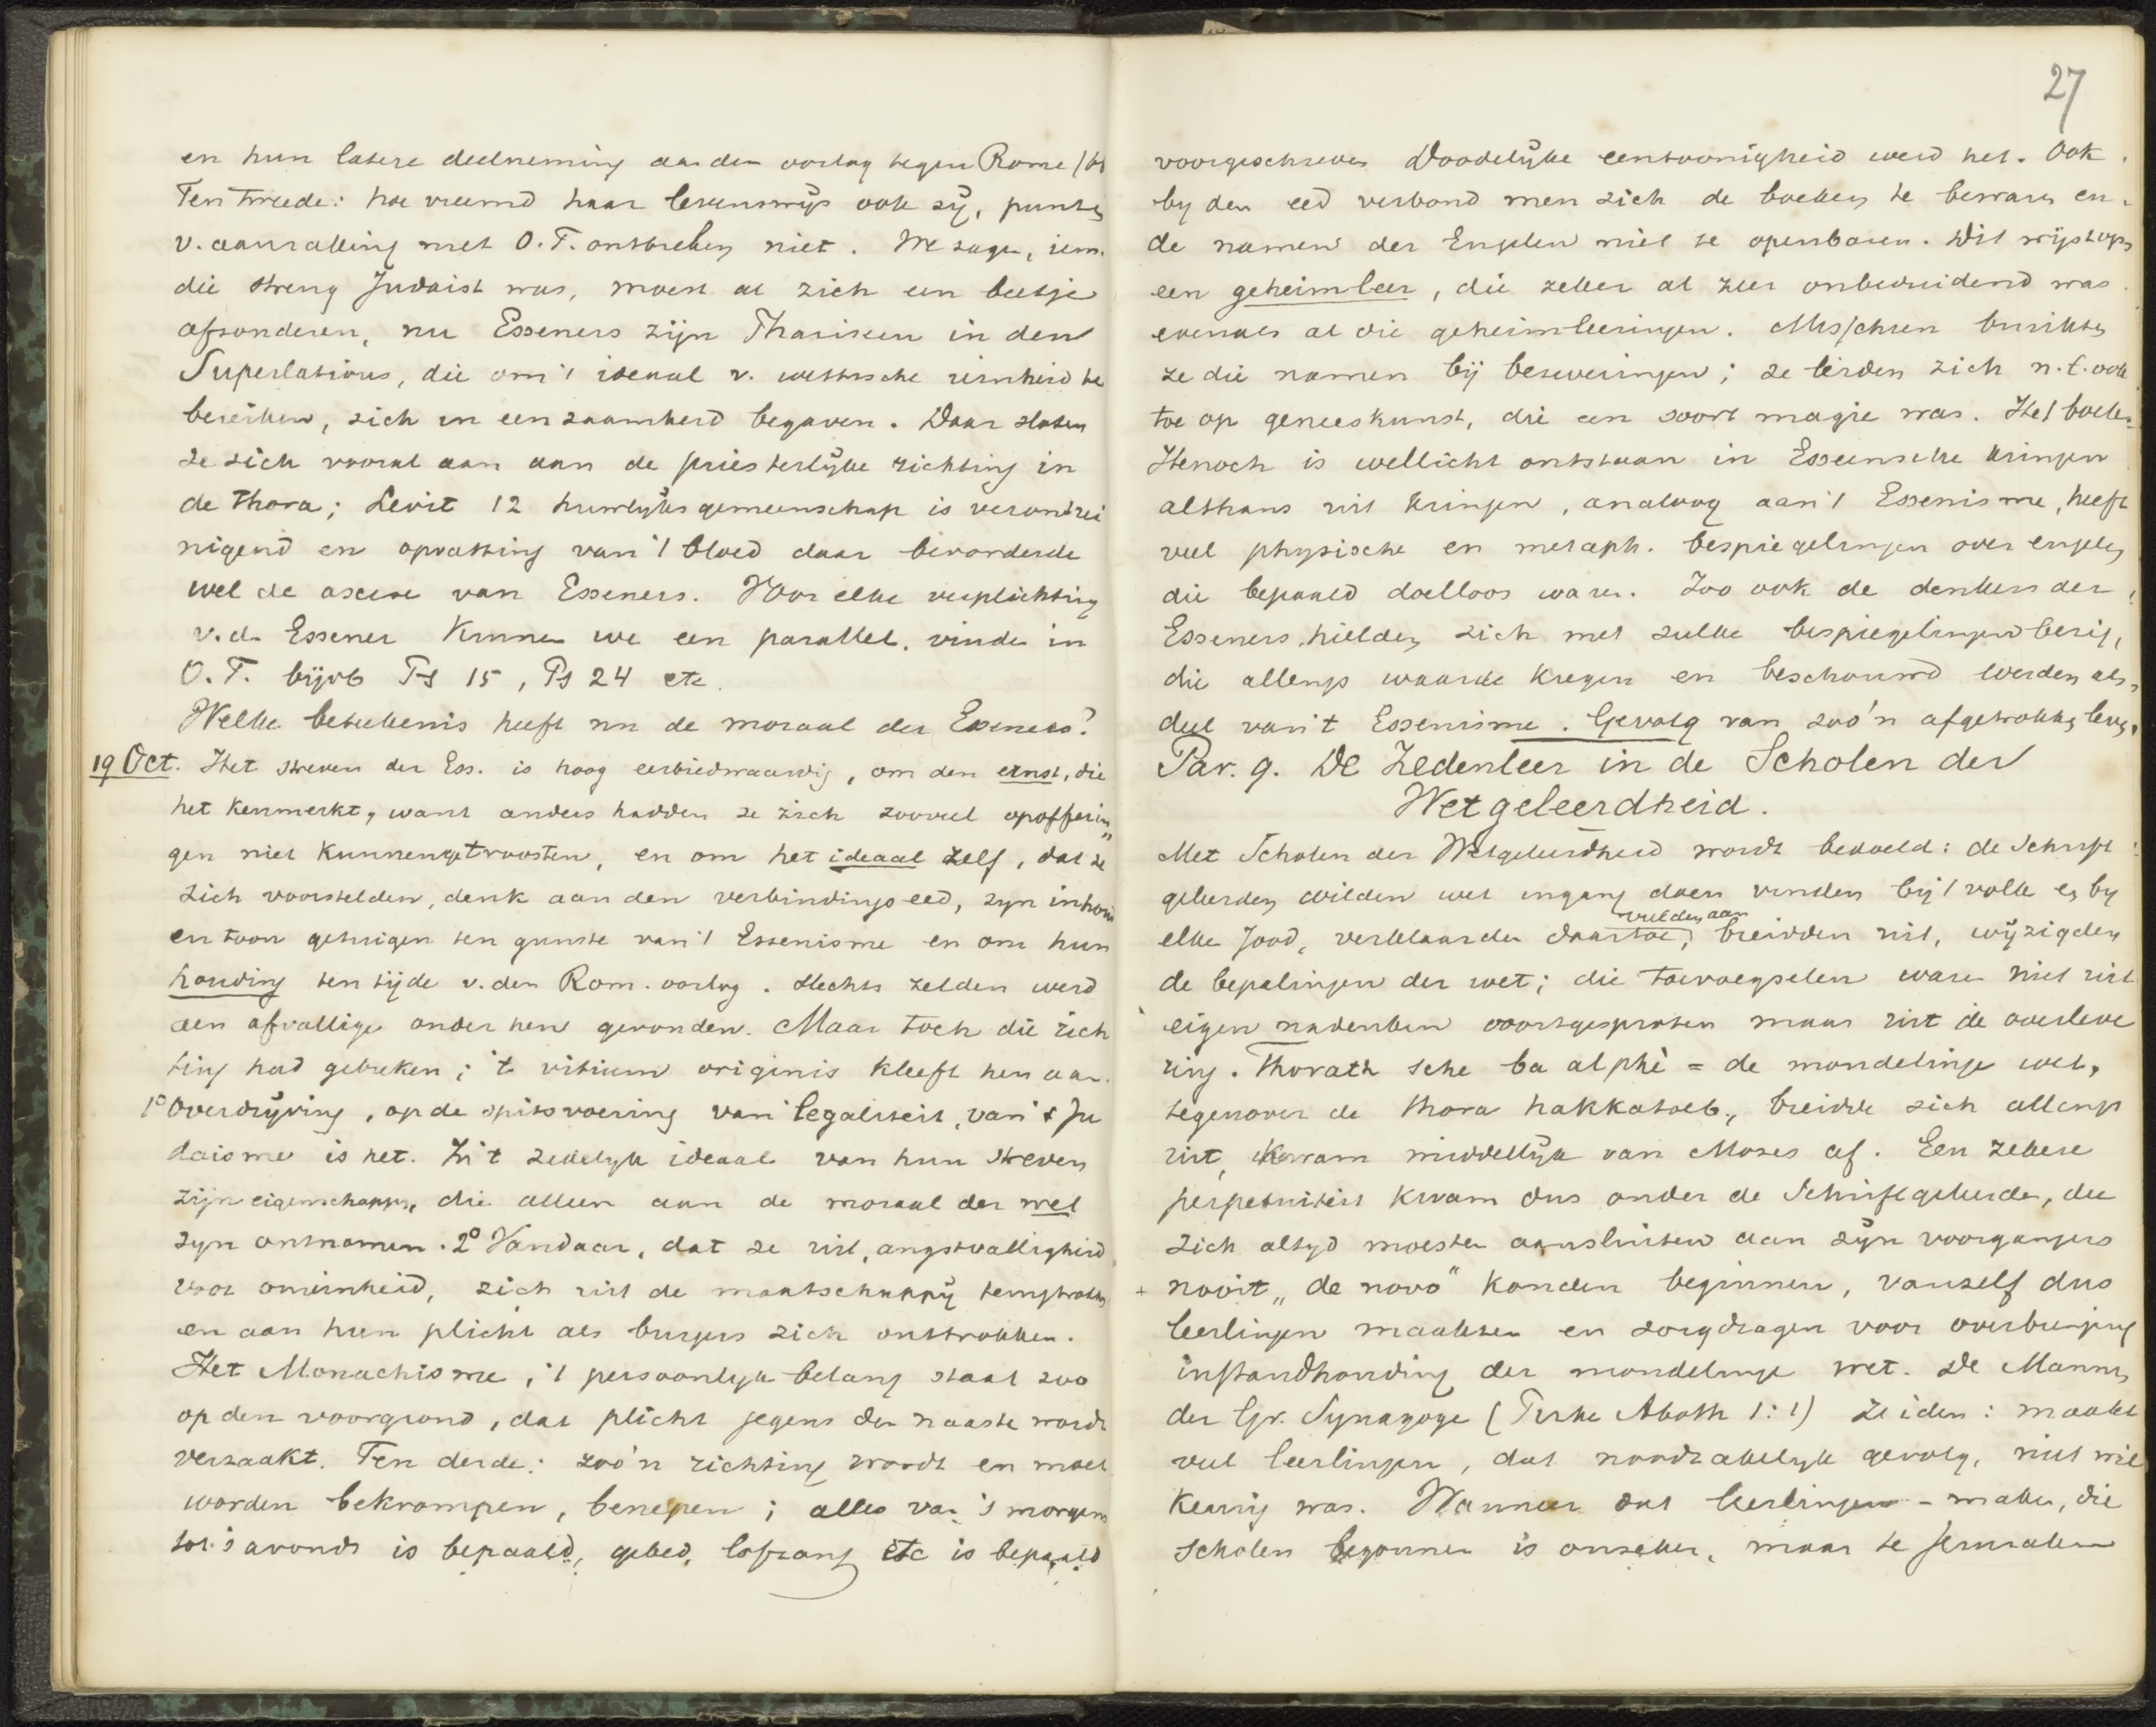 en hun latere deelneming aan den oorlog tegen Rome
Ten Tweede: hoe vreemd haar levenswijs ook zij, punten
v. aanraking met O.T. ontbreken niet. We zagen, iem.
die streng Judaist was, moest al zich een beetje
afzonderen, nu Esseners zijn Phariseen in den
Superlativus, die om 't ideaal v. wettische reinheid te
bereiken, zich in eenzaamheid begaven. Daar sloten
ze zich vooral aan aan de priesterlijke richting in
de Thora; Levit 12 huwlijksgemeenschap is verontrei
nigend en opvatting van 't bloed daar bevorderde
wel de ascese van Esseners. Voor elke verplichting
v.d. Essener kunnen we een parallel vinden in
O.T. bijvb Ps 15, Ps 24 etc.
Welke beteekenis heeft nu de moraal der Esseners?
19 Oct. Het streven der Ess. is hoog eerbiedwaardig, om den ernst, die
het kenmerkt, want anders hadden ze zich zooveel opofferin
gen niet kunnen getroosten, en om het ideaal zelf, dat ze
zich voorstelden, denk aan den verbindingseed, zyn inhoud
en toon getuigen ten gunste van 't Essenisme en om hun
houding ten tijde v. den Rom. oorlog. Slechts zelden werd
een afvallige onder hen gevonden. Maar toch die rich
ting had gebreken; 't vitium originis kleeft hen aan.
1° Overdrijving, op de spitsvoering van legaliteit, van 't Ju
daisme is het. In 't zedelyk ideaal van hun streven
zijn eigenschappen, die alleen aan de moraal der wet
zyn ontnomen. 2° Vandaar, dat ze uit angstvalligheid
voor onreinheid, zich uit de maatschappij terugtrokken
en aan hun plicht als burgers zich onttrokken.
Het Monachisme, 't persoonlyk belang staat zoo
op den voorgrond, dat plicht jegens den naaste wordt
verzaakt. Ten derde: zoo'n richting wordt en moet
worden bekrompen, benepen; alles van 's morgens
tot 's avonds is bepaald, gebed, lofzang etc is bepaald
27
voorgeschreven Doodelijke eentoonigheid werd het. Ook
by den eed verbond men zich de boeken te bewaren en
de namen der Engelen niet te openbaren. Dit wijst op
een geheimleer, die zeker al zeer onbeduidend was
evenals al die geheimleeringen. Misschien bruikten
ze die namen bij bezweringen; ze leiden zich n.l. ook
toe op geneeskunst, die een soort magie was. Het boek
Henoch is wellicht ontstaan in Esseensche kringen
althans uit kringen, analoog aan 't Essenisme, heeft
veel physische en metaph. bespiegelingen over engelen
die bepaald doelloos waren. Zoo ook de denkers der
Esseners hielden zich met zulke bespiegelingen bezig,
die allengs waarde kregen en beschouwd werden als
deel van 't Essenisme. Gevolg van zoo'n afgetrokken leven.
Par. 9. De Zedenleer in de Scholen der
Wetgeleerdheid.
Met Scholen der Wetgeleerdheid wordt bedoeld: de Schrift
geleerden wilden wet ingang doen vinden bij 't volk en by
vulden aan
elke Jood, verklaarden daartoe, breidden uit, wijzigden
de bepalingen der wet; die toevoegselen waren niet uit
eigen nadenken voortgesproten maar uit de overleve
ring. Thorath sche ba al phè = de mondelinge wet,
tegenover de Thora hakkatoeb, breidde zich allengs
uit, kwam middellijk van Moses af. Een zekere
perpetuiteit kwam dus onder de Schriftgeleerden, die
zich altyd moesten aansluiten aan zijn voorgangers
+ nooit "de novo" konden beginnen, vanzelf dus
leerlingen maakten en zorgdragen voor overbrenging
instandhouding der mondelinge wet. De Mannen
der Gr. Synagoge (Pirke Aboth 1:1) zeiden: maakt
veel leerlingen, dat noodzakelyk gevolg, niet wil
keurig was. Wanneer dat leerlingen-maken, die
Scholen begonnen is onzeker, maar te Jeruzalem